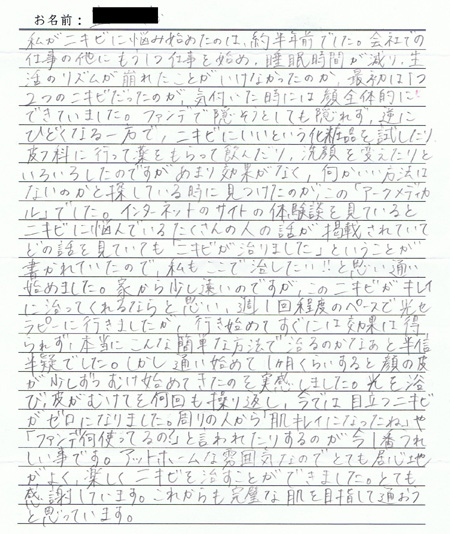 お名前:
私がニキビに悩み始めたのは、約半年前でした。会社での
仕事の他にもう1つ仕事を始め、睡眠時間が減り、生
活のリズムが崩れたことがいけなかったのか、最初は1つ
2つのニキビだったのが、気付いた時には顔全体的に
できていました。ファンデで隠そうとしても隠れず、逆に
ひどくなる一方で、ニキビにいいという化粧品を試したり
皮フ科に行って薬をもらって飲んだり、洗顔を変えたりと
いろいろしたのですがあまり効果がなく、何かいい方法は
ないのかと探している時に見つけたのがこの「アークメディカ
ル」でした。インターネットのサイトの体験談を見ていると
ニキビに悩んでいるたくさんの人の話が掲載されていて
どの話を見ていても「ニキビが治りました」ということが
書かれていたので、私もここで治したい!!と思い通い
始めました。家から少し遠いのですが、このニキビがキレイ
に治ってくれるならと思い、週1回程度のペースで光セ
ラピーに行きましたが、行き始めてすぐには効果は得
られず、本当にこんな簡単な方法で治るのかなあと半信
半疑でした。しかし通い始めて1ヶ月くらいすると顔の皮
が少しずつむけ始めてきたのを実感しました。光を浴
び、皮がむけてを何回も操り返し、今では目立つニキビ
がゼロになりました。周りの人から「肌キレイになったね」や
「ファンデ何使ってるの?」と言われたりするのが今1番うれ
しい事です。アットホームな雰囲気なのでとても居心地
がよく、楽しくニキビを治すことができました。とても
感謝しています。これからも完璧な肌を目指して通おう
と思っています。